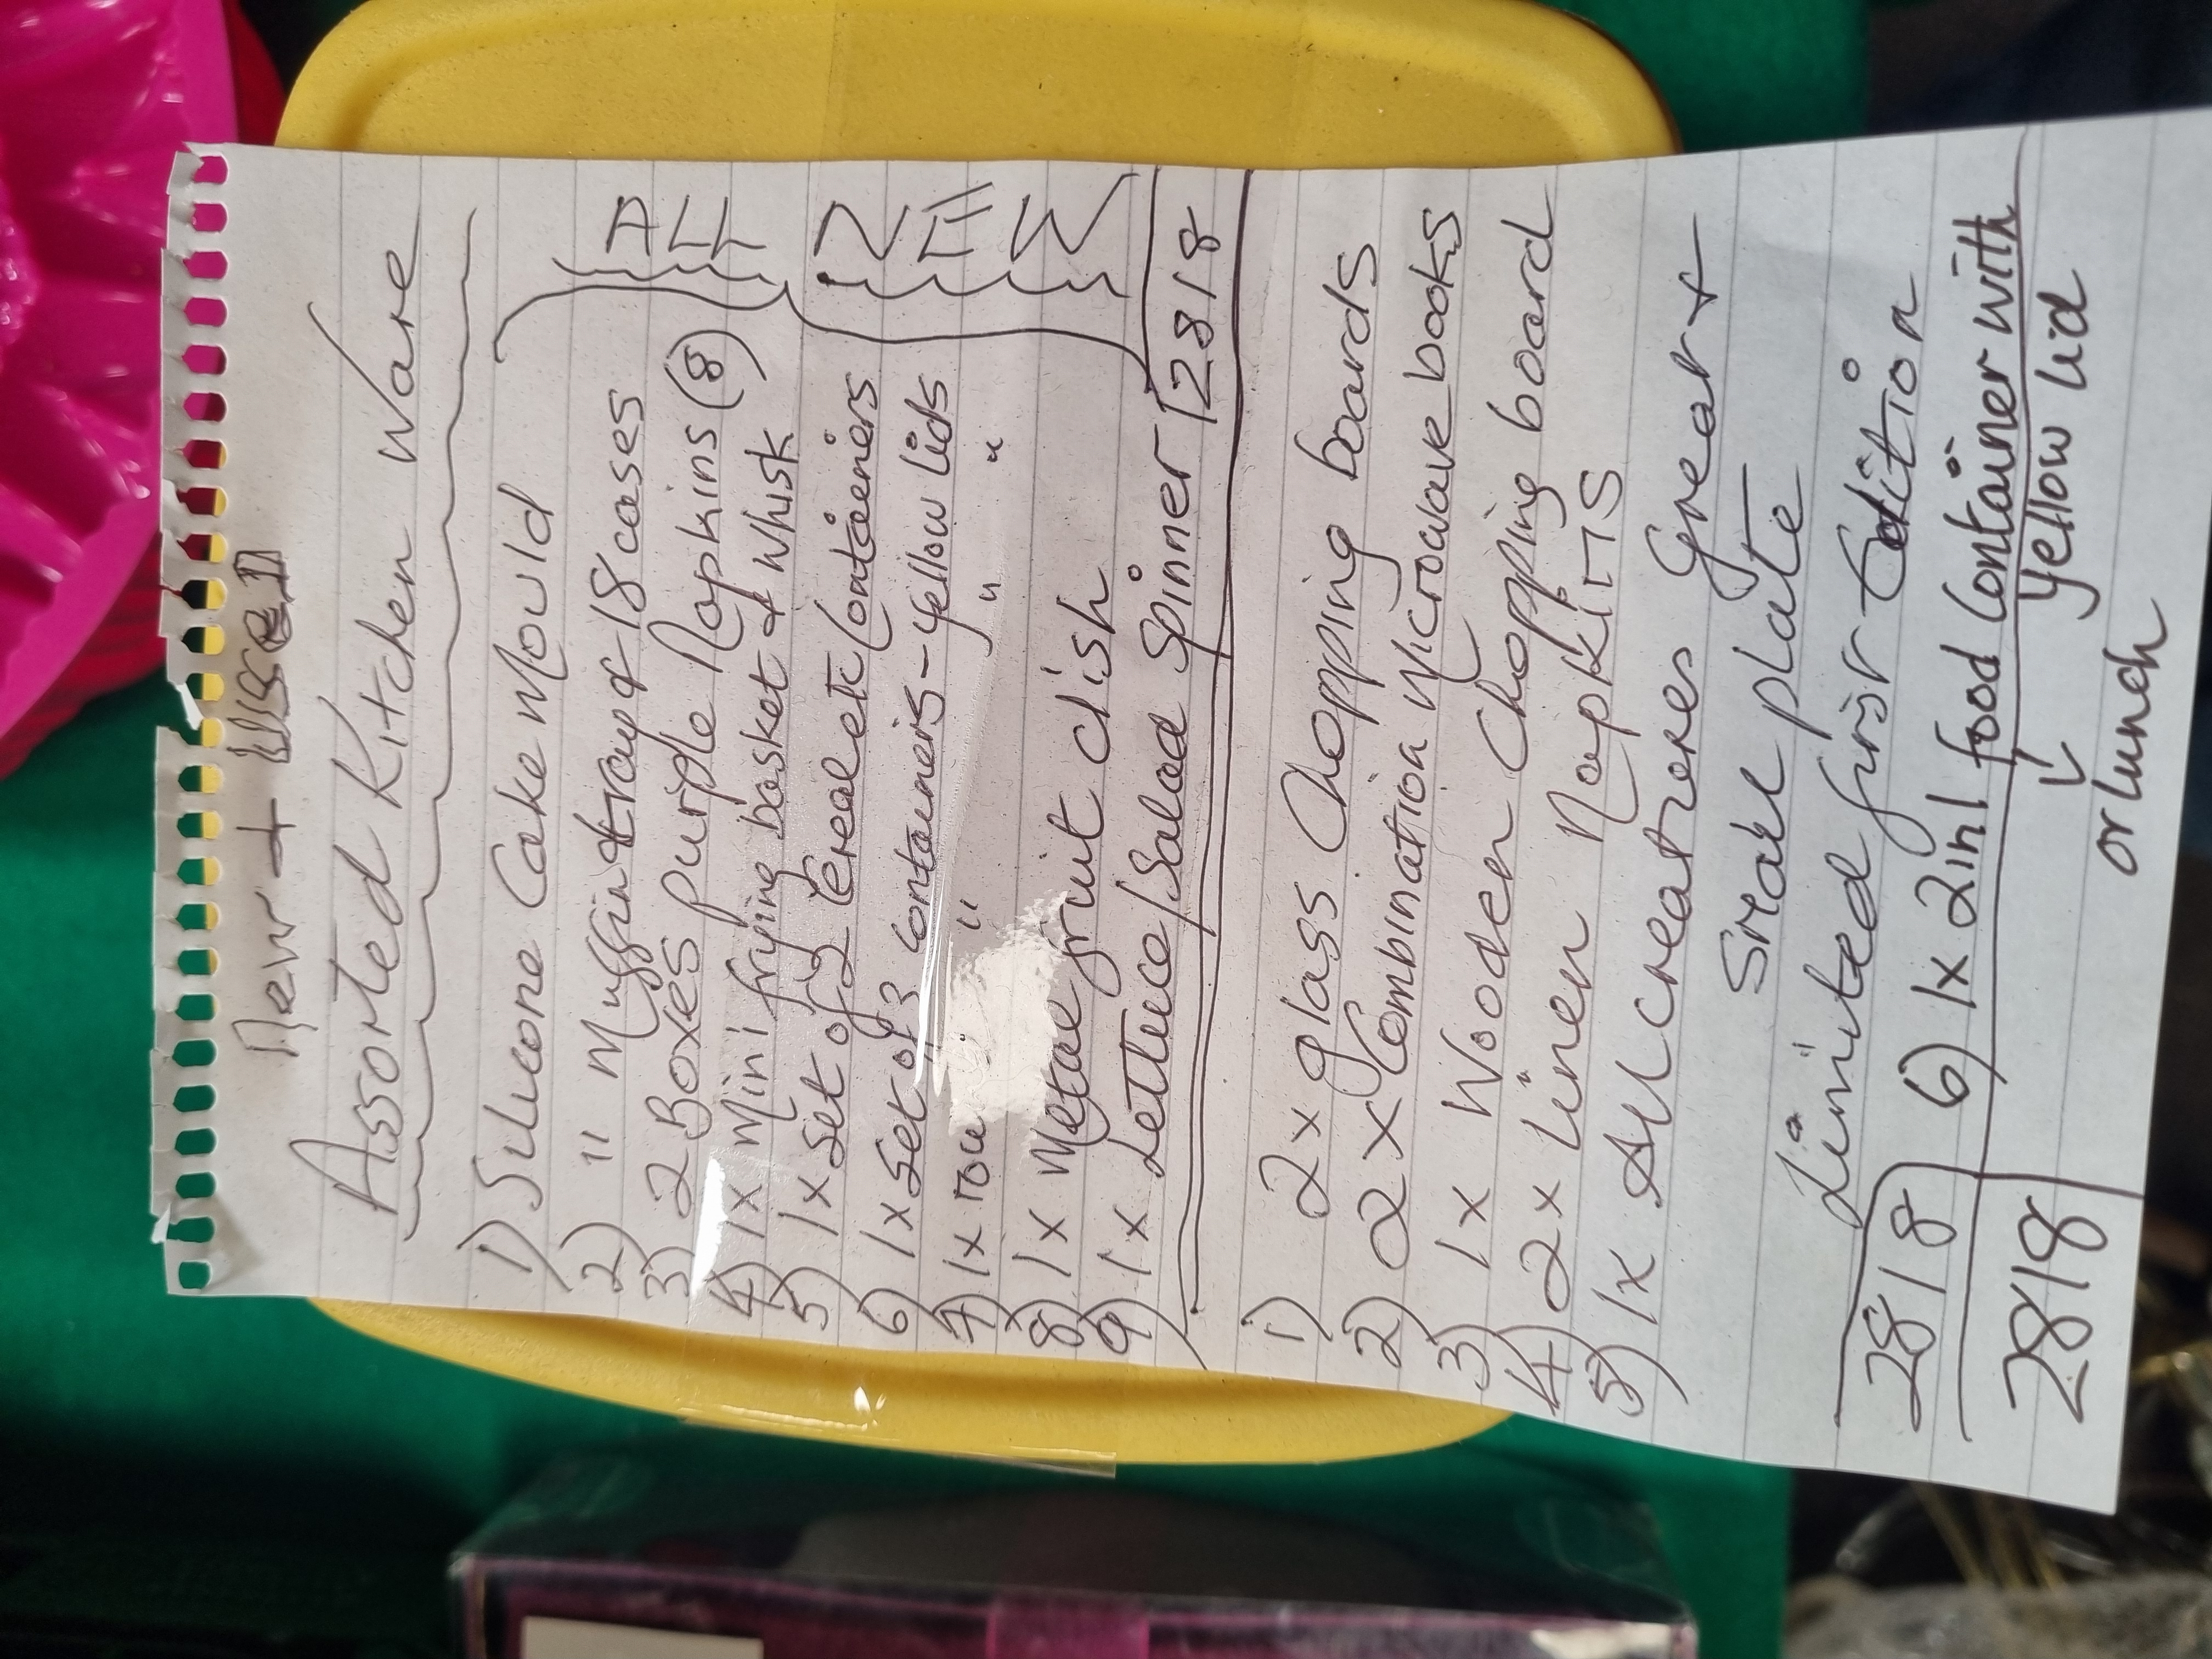 New + Used
Assorted Kitchen Ware
1) Silicone Cake Mould
2) " Muffin tray & 18 cases
3) 2 Boxes purple Napkins (8)
4) 1x Mini frying basket & whisk
5) 1x Set of 2 Cereal etc Containers
6) 1x Set of 3 Containers - yellow lids
7) 1x " " "
8) 1x Metal fruit dish
9) 1x Lettuce/Salad Spinner
ALL
NEW
2818
1) 2x glass Chopping boards
2) 2x Combination Microwave books
3) 1x Wooden Chopping board
4) 2x Linen Napkins
5) 1x All creatures Great +
Small plate
Limited first Edition
2818 6) 1x 2in1 food Container with
2818 yellow lid
or lunch